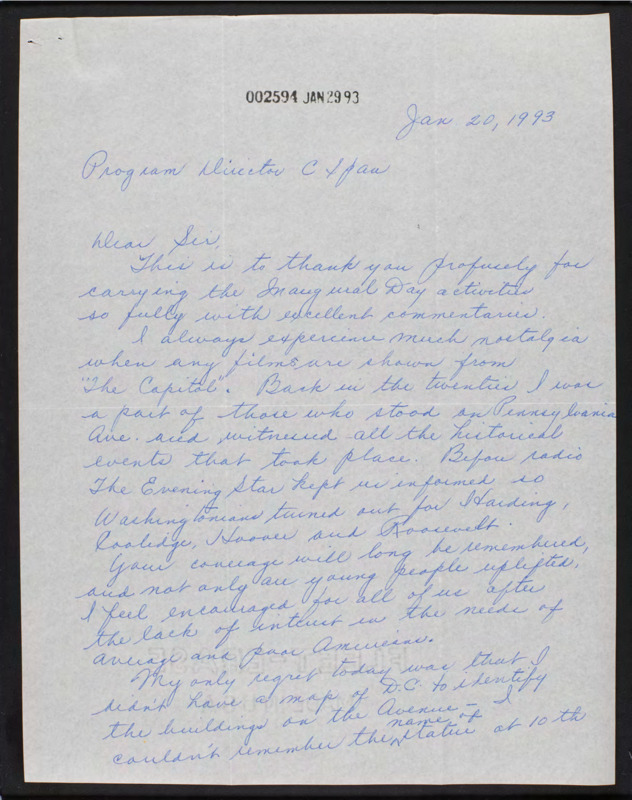 002594 JAN 29 93
Jan 20, 1993
Program Director C Span
Dear Sir,
This is to thank you profusely for
carrying the Inaugural Day activities
so fully with excellent commentaries.
I always experience much nostalgia
when any films are shown from
"The Capitol". Back in the twenties I was
a part of those who stood on Pennsylvania
Ave. and witnessed all the historical
events that took place. Before radio
The Evening Star kept us informed so
Washingtonians turned out for Harding,
Coolidge, Hoover and Roosevelt.
Your coverage will long be remembered,
and not only are young people uplifted,
I feel encouraged for all of us after
the lack of interest in the needs of
average and poor Americans.
My only regret today was that I
didn't have a map of D.C. to identify
the buildings on the Avenue – I
couldn't remember the name of statue at 10th